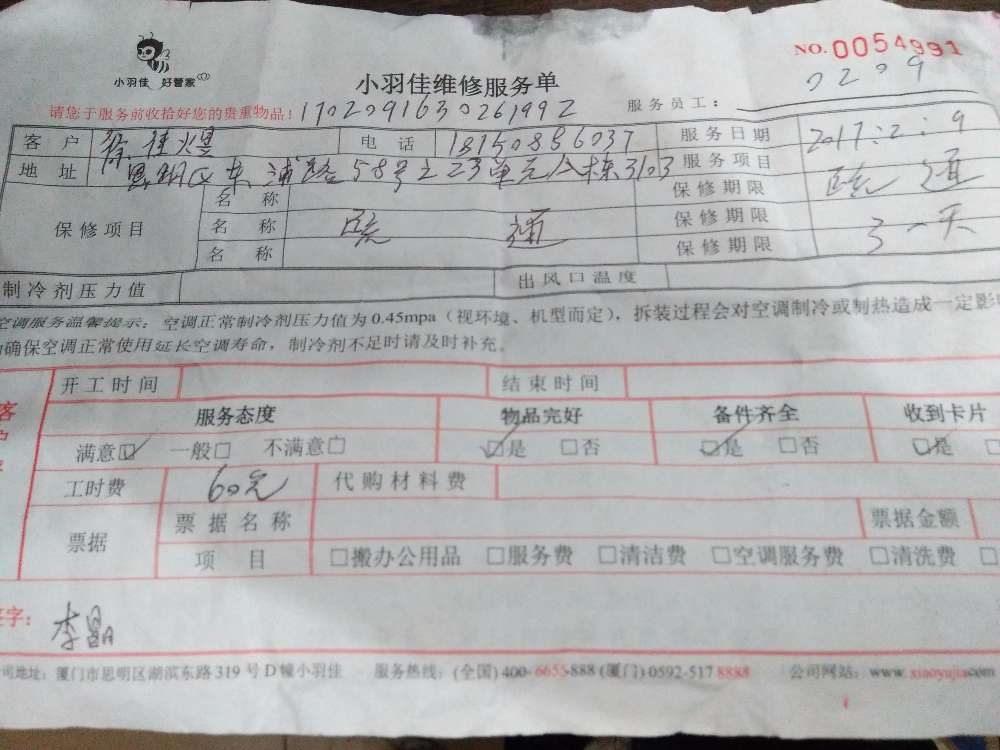 小羽佳 好管家
NO.0054991
小羽佳维修服务单
0209
请您于服务前收拾好您的贵重物品！1702091630261992
服务员工：
客户 徐佳煜 电话 18150886037 服务日期 2017:2:9
地址 思明区东浦路58号之23单元 栋3103 服务项目 疏通
保修项目 名称 保修期限
名称 疏通 保修期限 三十天
名称 保修期限
制冷剂压力值 出风口温度
空调服务温馨提示：空调正常制冷剂压力值为0.45mpa（视环境、机型而定），拆装过程会对空调制冷或制热造成一定影
确保空调正常使用延长空调寿命，制冷剂不足时请及时补充。
客户
开工时间 结束时间
服务态度 物品完好 备件齐全 收到卡片
满意☑ 一般□ 不满意□ ☑是 □否 ☑是 □否 ☑是
工时费 60元 代购材料费
票据 票据名称 票据金额
项目 □搬办公用品 □服务费 □清洁费 □空调服务费 □清洗费 □
签字： 李
司地址：厦门市思明区湖滨东路319号D幢小羽佳 服务热线：(全国)400-6655-888 (厦门)0592-5178888 公司网站：www.xiaoyujia.com